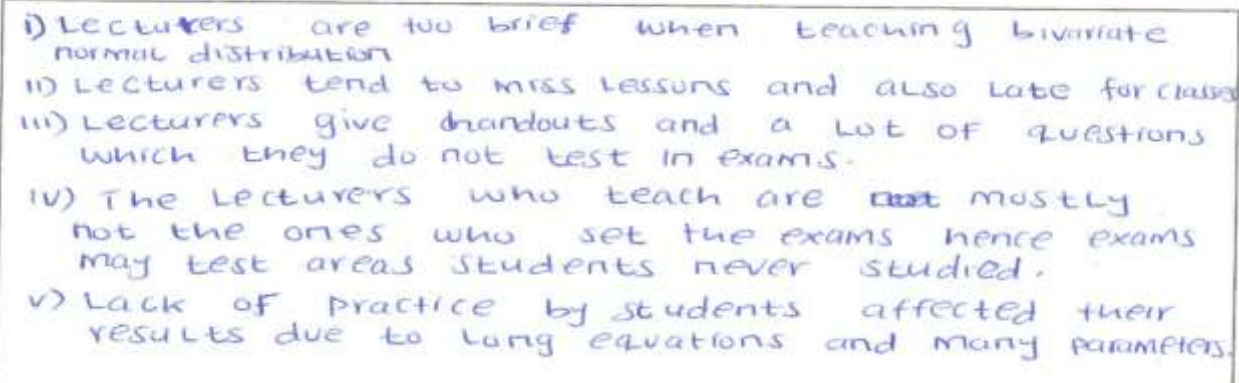 i) Lecturers are too brief when teaching bivariate
normal distribution
ii) Lecturers tend to miss lessons and also late for classes
iii) Lecturers give handouts and a lot of questions
which they do not test in exams.
iv) The Lecturers who teach are mostly
not the ones who set the exams hence exams
may test areas students never studied.
v) Lack of practice by students affected their
results due to long equations and many parameters.